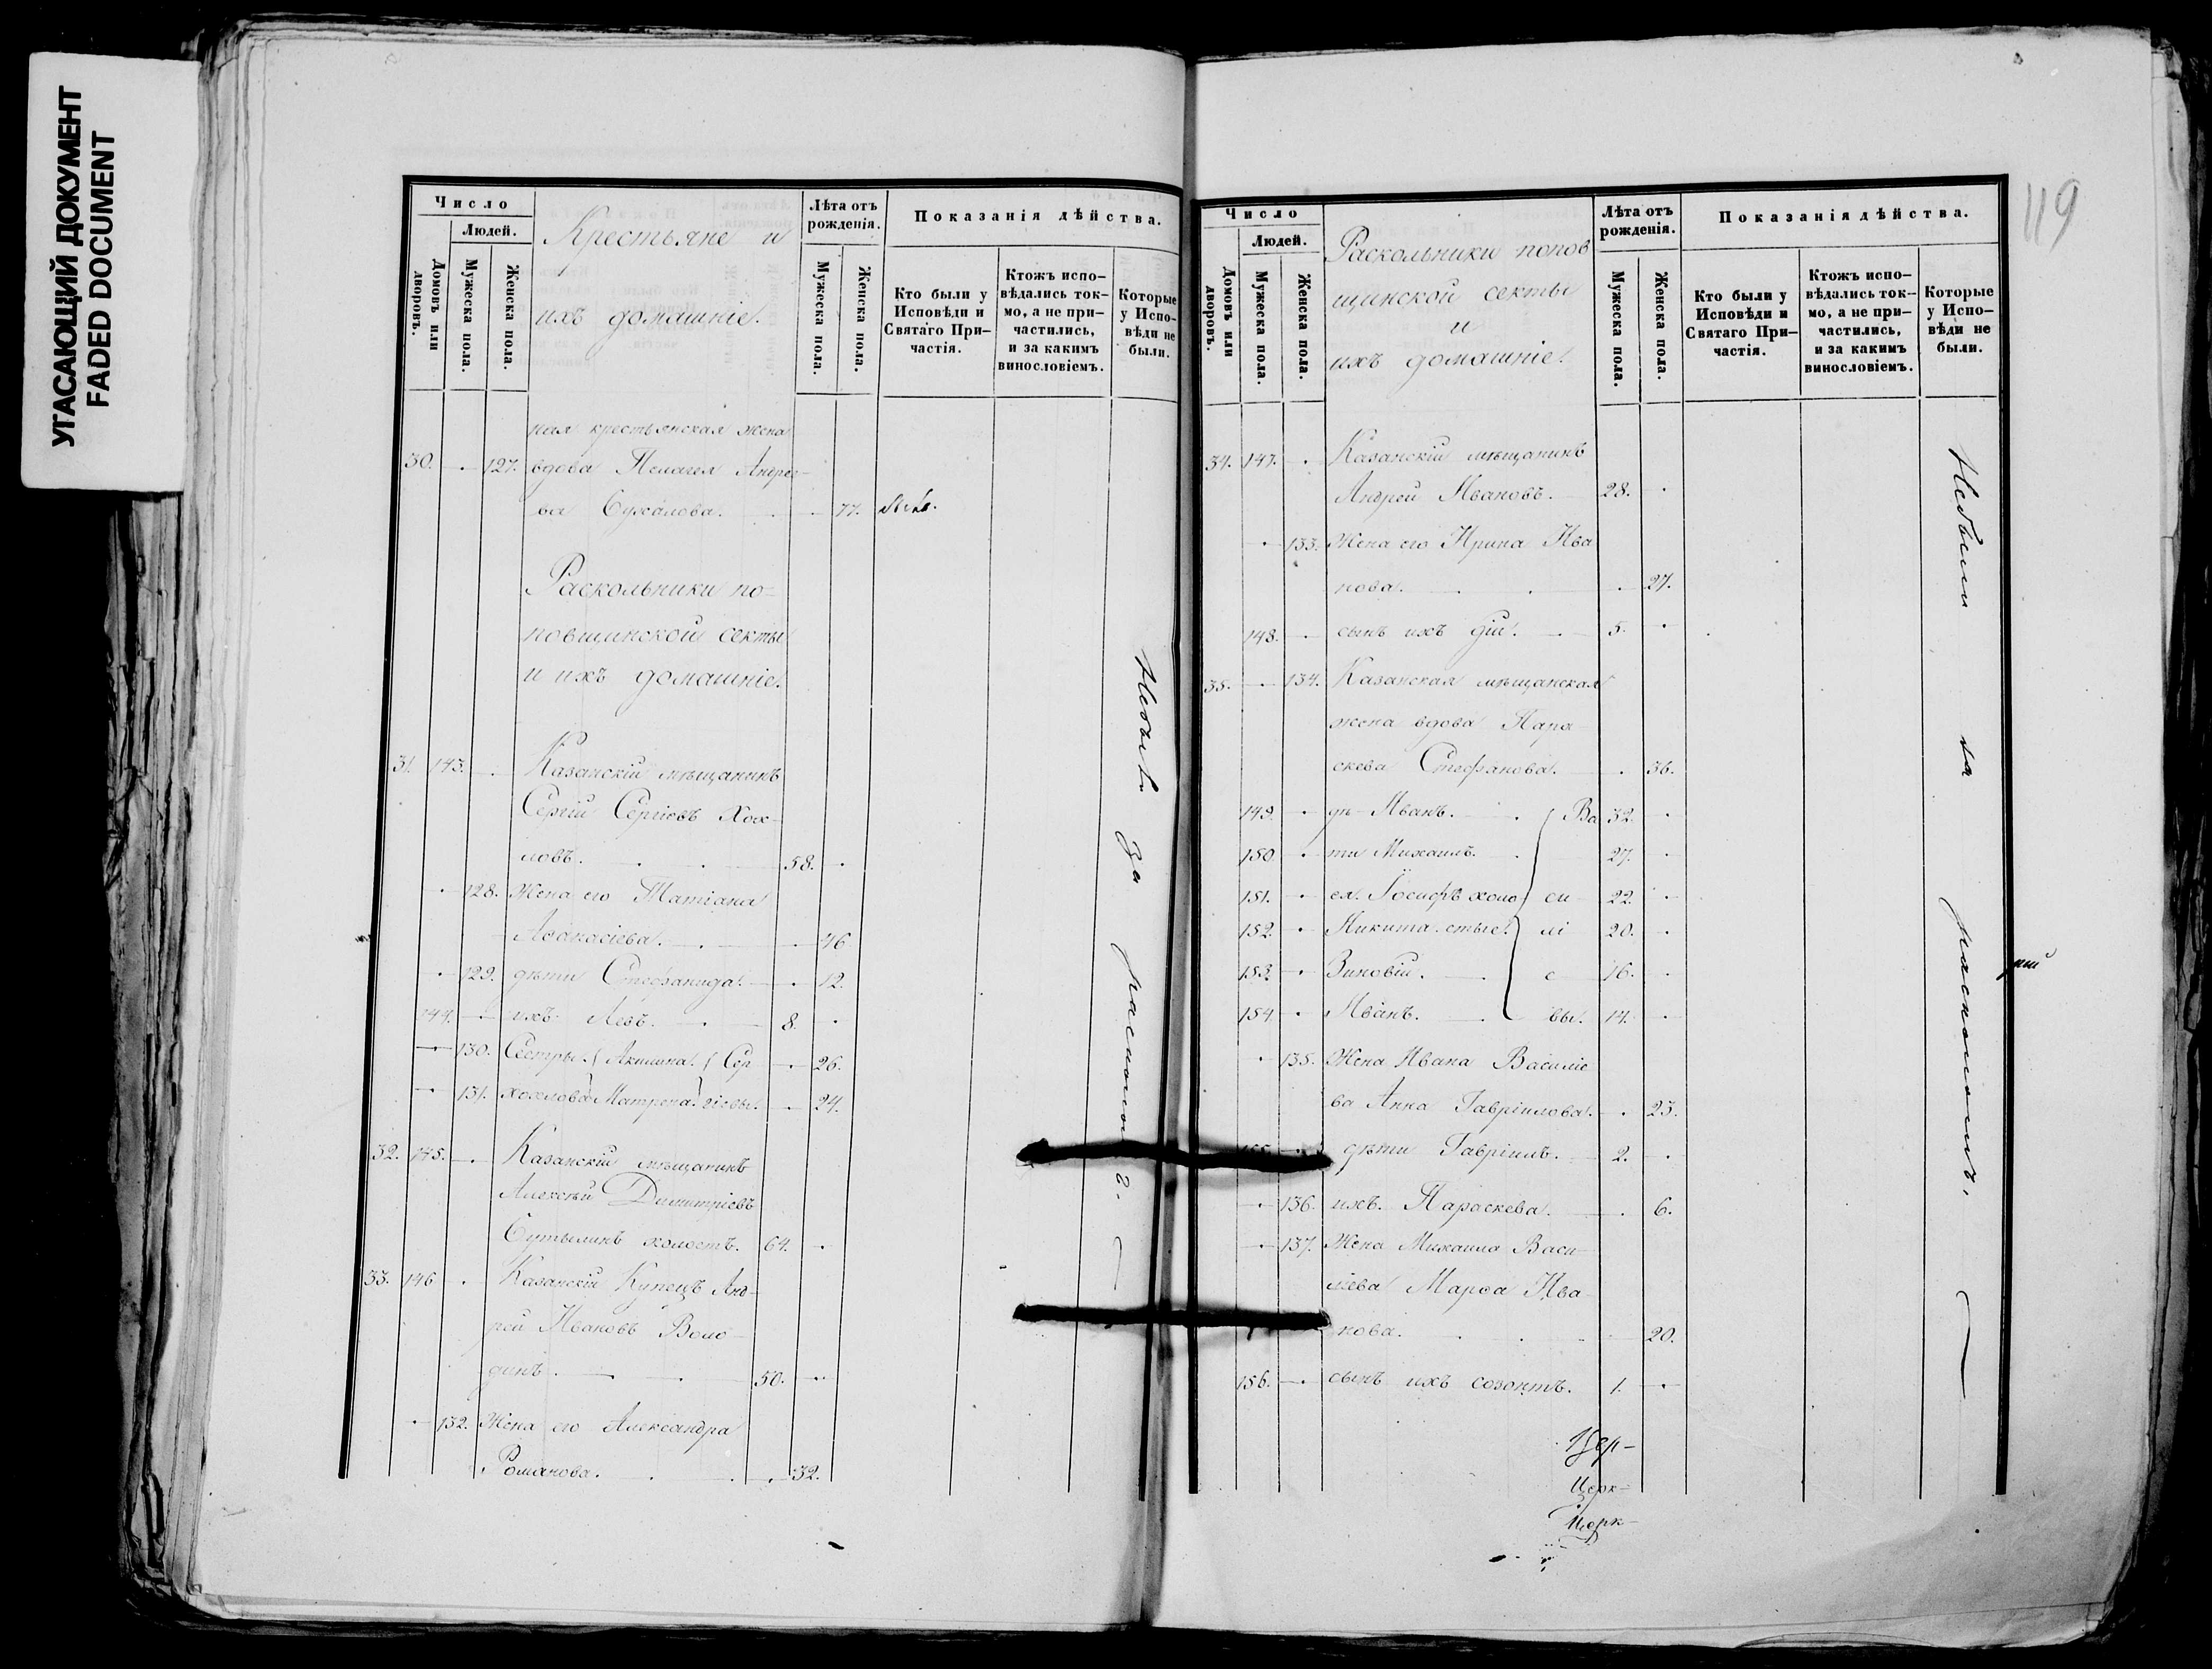 УГАСАЮЩИЙ ДОКУМЕНТ
FADED DOCUMENT
Число
Людей.
Домовъ или дворовъ.
Мужеска пола.
Женска пола.
Крестьяне и
ихъ домашніе.
Лѣта отъ рожденія.
Мужеска пола.
Женска пола.
Показанія дѣйства.
Кто были у Исповѣди и Святаго При-частія.
Ктожъ испо-вѣдались ток-мо, а не при-частились, и за какимъ винословіемъ.
Которые у Испо-вѣди не были.
ная крестьянская жена
30. . 127. вдова Пелагея Андрее-
ва Сухалова. . 77.
Раскольники по-
повщинской секты
и ихъ домашніе.
31. 143. . Казанскій мѣщанинъ
Сергій Сергіевъ Хох-
ловъ. 58. .
. 128. Жена его Татіана
Аѳанасіева. . 46.
. 129. дѣти Стефанида. . 12.
144. . ихъ Левъ. 8. .
. 130. Сестры Акилина. Сер . 26.
. 131. хохлова Матрена. гіевы. . 24.
32. 145. . Казанскій мѣщанинъ
Алексѣй Димитріевъ
Сутылинъ холостъ. 64. .
33. 146 . Казанскій Купецъ Анд-
рей Ивановъ Воло-
динъ. 50. .
. 132. Жена его Александра
Романова. . 32.
Небыли за расколомъ.
119
Число
Людей.
Домовъ или дворовъ.
Мужеска пола.
Женска пола.
Раскольники попов
щинской секты
и
ихъ домашніе.
Лѣта отъ рожденія.
Мужеска пола.
Женска пола.
Показанія дѣйства.
Кто были у Исповѣди и Святаго При-частія.
Ктожъ испо-вѣдались ток-мо, а не при-частились, и за какимъ винословіемъ.
Которые у Испо-вѣди не были.
34. 147. . Казанскій мѣщанинъ
Андрей Ивановъ. 28. .
. 133. Жена его Ирина Ива
нова. . 27.
148. . сынъ ихъ 5. .
35. . 134. Казанская мѣщанская
жена вдова Пара-
скева Стефанова. . 36.
149. . дѣ Иванъ. Ва 32. .
150 . ти Михаилъ. 27. .
151. . ея. Іосифъ холо си 22. .
152. . Никита. стые. лі 20. .
153. . Зиновій. е 16. .
154. . Иванъ. вы. 14. .
. 135. Жена Ивана Василіе
ва Анна Гавріилова. . 23.
. дѣти Гавріилъ. 2. .
. 136. ихъ. Параскева. . 6.
. 137. Жена Михаила Васи-
ліева Марѳа Ива-
нова. 20.
156. . сынъ ихъ созонтъ. 1. .
Небыли за расколомъ.
Цер-
Церк-
Церк-